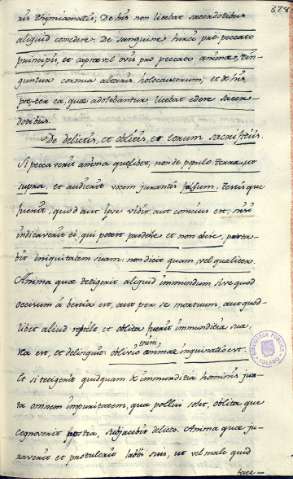 ris thymiamatis; De his non licebat sacerdotibus
aliquid comedere. De sanguine hirci pro peccato
principis, et capræ vel ovis pro peccato animæ, tin
guntur cornua altaris holocaustorum; et de his
præter ea, quæ adolebantur licebat edere sacer-
dotibus.
De delictis, et oblitis, et eorum sacrificiis.
Si peccaverit anima quælibet, non de populo terræ,
supra, et audierit vocem jurantis falsum, testisque
fuerit, quod aut ipse vidit, aut conscius est, nisi
indicaverit ei, qui potest prodesse et non obesse, porta-
bit iniquitatem suam; non dicit quam, vel qualiter.
Anima quæ tetigerit aliquid immundum sive quod
occisum à bestia est, aut per se mortuum, aut quod-
libet aliud reptile et oblita fuerit immunditiæ suæ,
rea est, et deliquit:
Et si tetigerit quidquam de immunditia hominis jux-
ta omnem impuritatem, qua pollui solet, oblitaque
cognoverit postea, subjacebit delicto. Anima quæ ju-
raverit et protulerit labiis suis, ut vel male quid